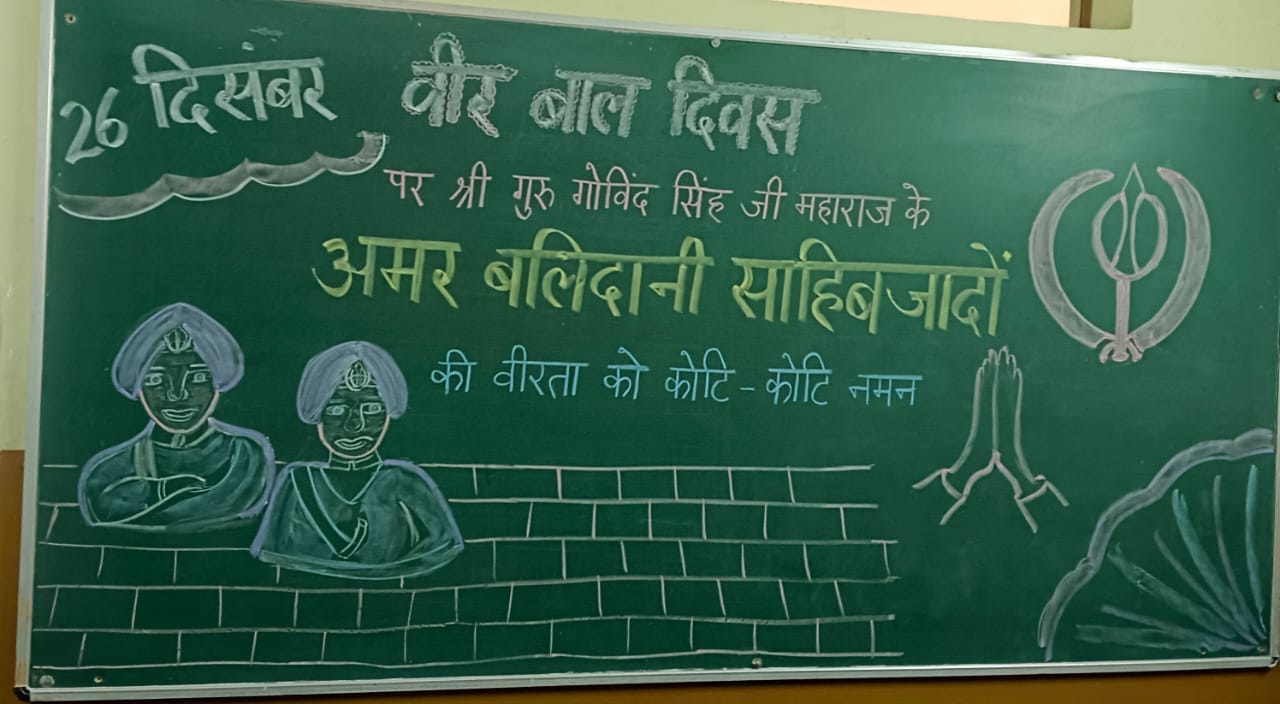 26 दिसंबर वीर बाल दिवस
पर श्री गुरु गोविंद सिंह जी महाराज के
अमर बलिदानी साहिबजादों
की वीरता को कोटि-कोटि नमन